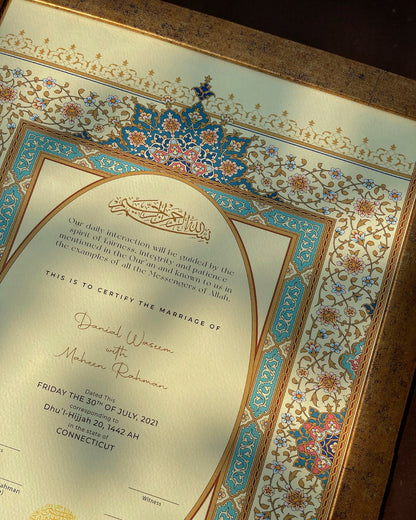 بسم الله الرحمن الرحيم
Our daily interaction will be guided by the
spirit of fairness, integrity and patience
mentioned in the Qur'an and known to us in
the examples of all the Messengers of Allah.
THIS IS TO CERTIFY THE MARRIAGE OF
Danial Waseem
with
Maheen Rahman
Dated This
FRIDAY THE 30TH OF JULY, 2021
corresponding to
Dhu'l-Hijjah 20, 1442 AH
in the state of
CONNECTICUT
Rahman
Witness